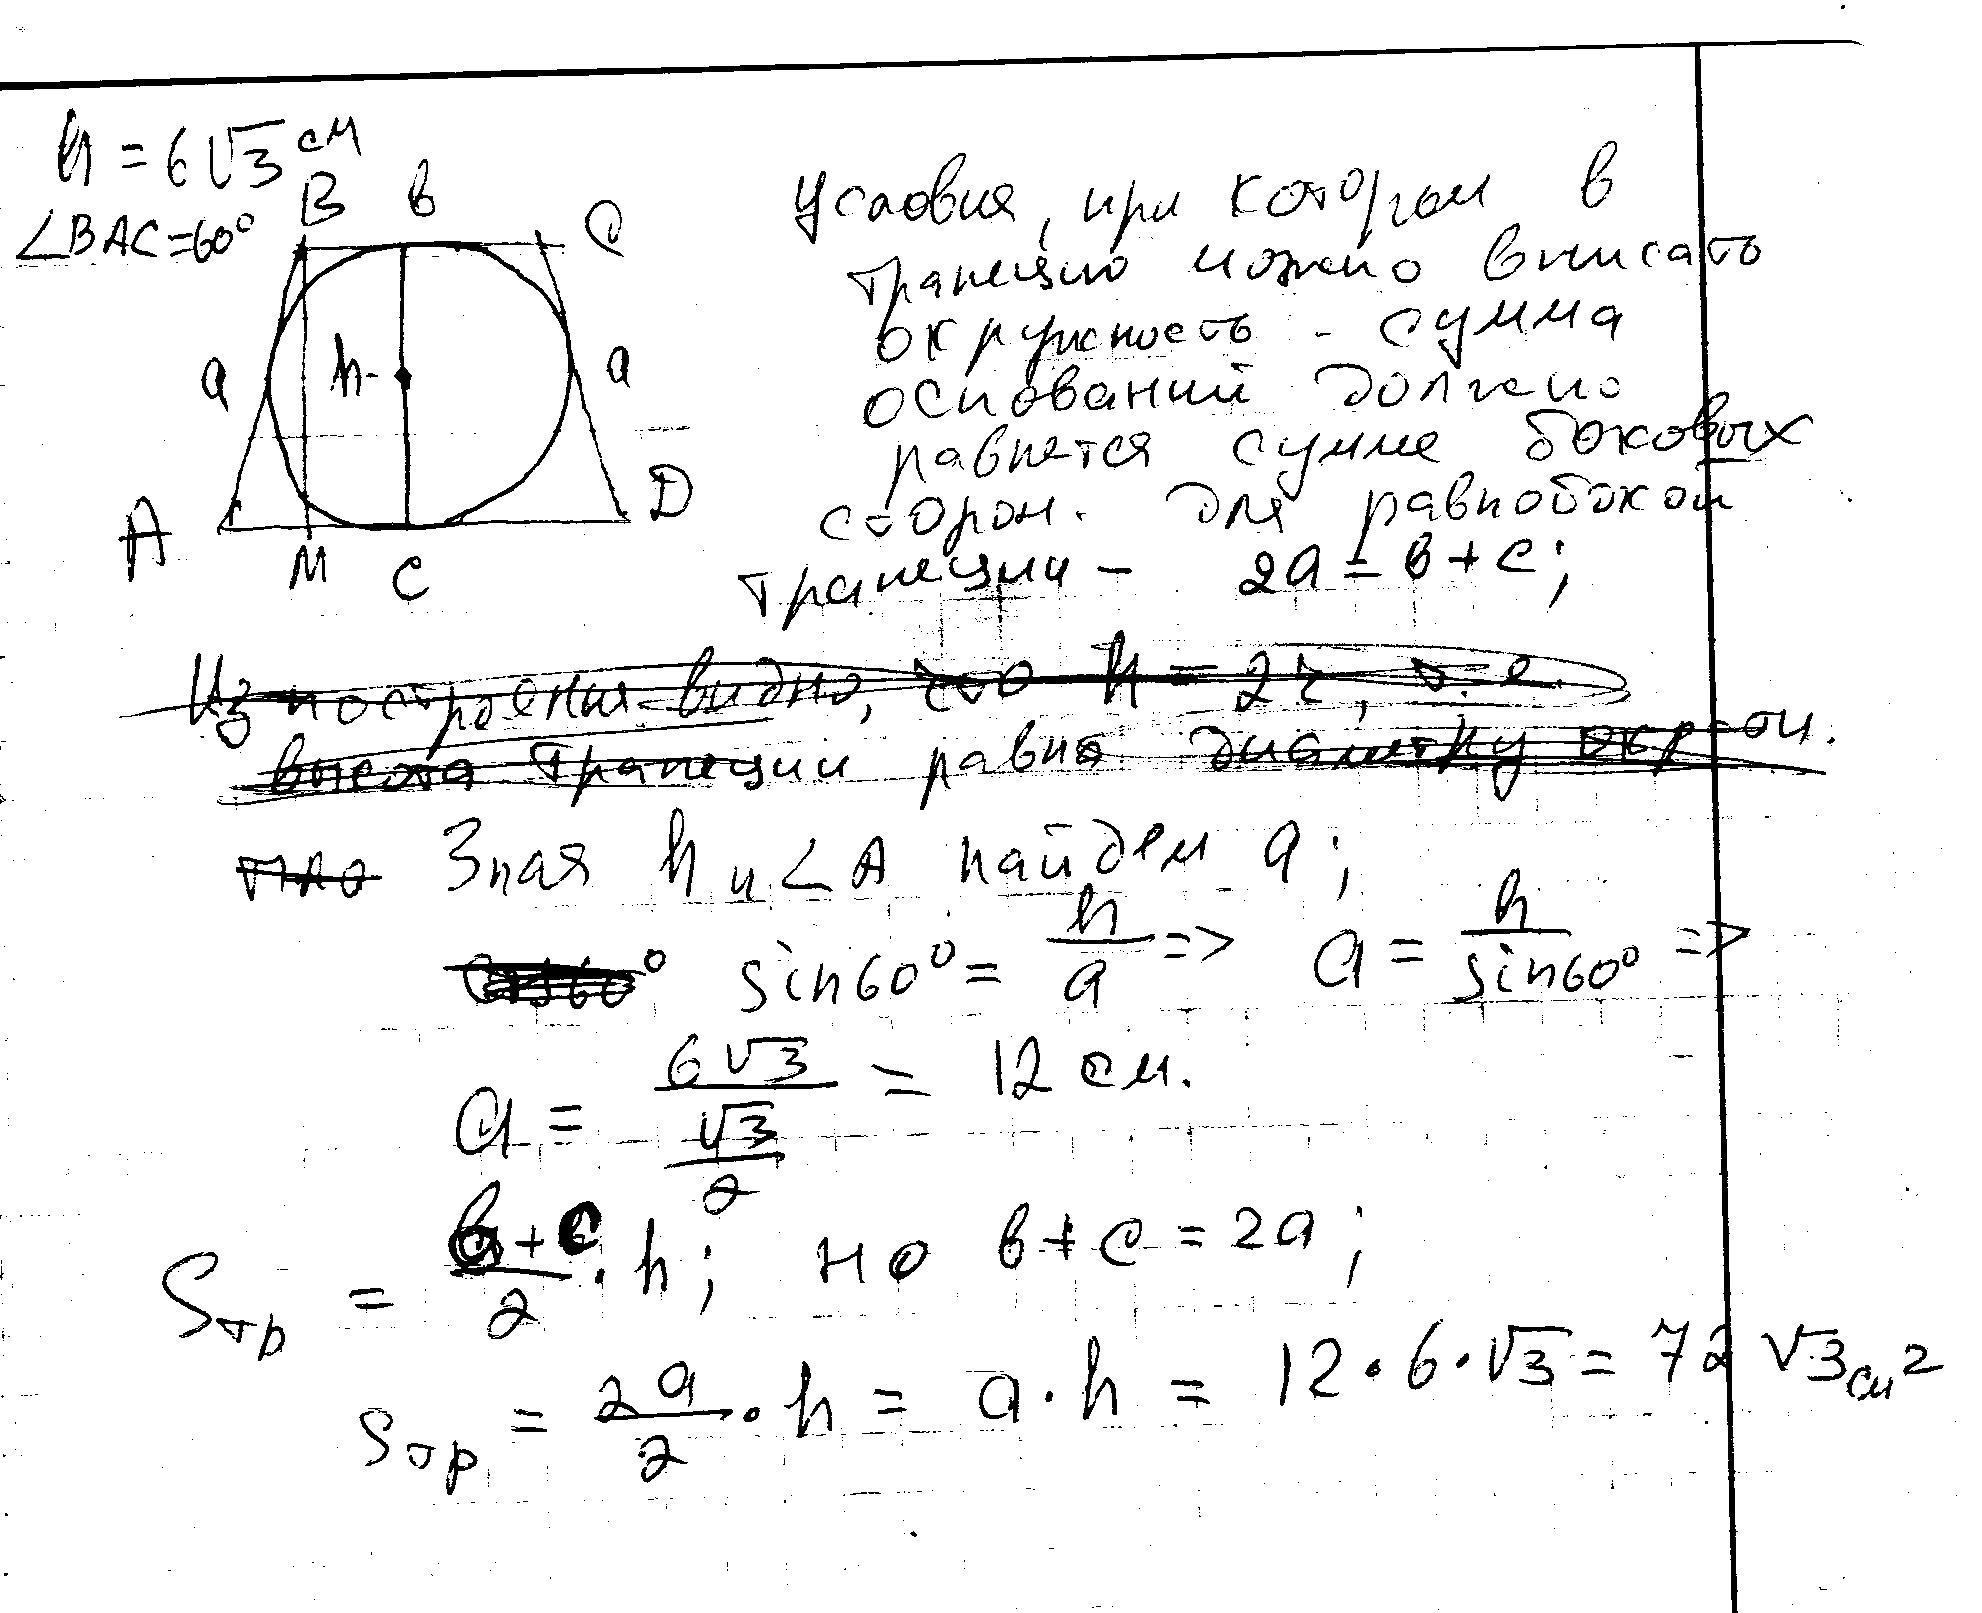 h = 6√3 см
∠BAC = 60°
B в C
a h a
A M c D
Условия, при котором в
трапецию можно вписать
окружность - сумма
оснований должно
равнется сумме боковых
сторон. Для равнобокой
трапеции - 2a = в + c;
Из построения видно, что h = 2r, т.е.
высота трапеции равна диаметру окр-ти.
Зная h и ∠A найдем a;
cos60° sin60° = h/a => a = h/sin60° =>
a = 6√3/(√3/2) = 12 см.
Sтр = (в + c)/2 · h; но в + c = 2a;
Sтр = 2a/2 · h = a · h = 12 · 6 · √3 = 72√3 см²